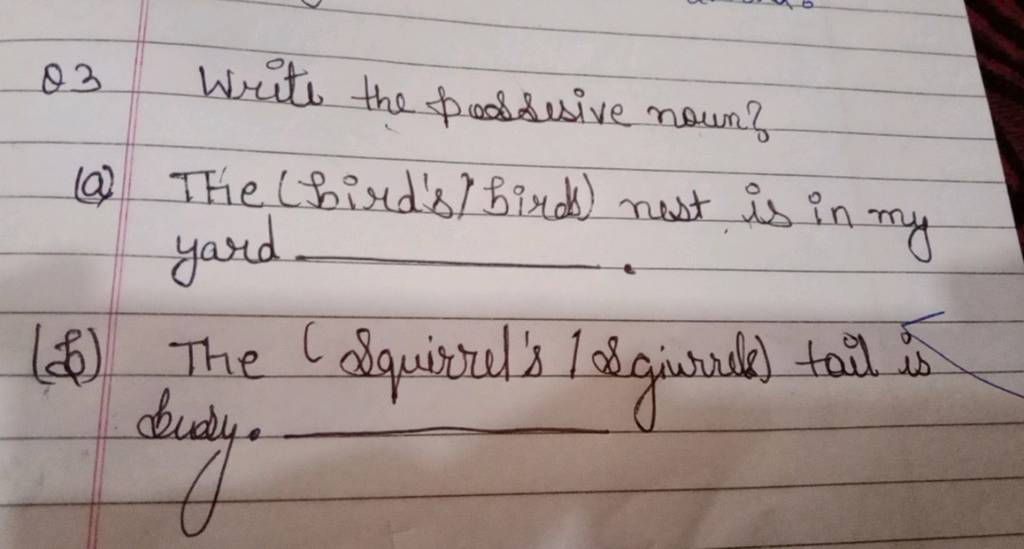 Q3 Write the possesive noun?
(a) The (bird's/birds) nest is in my
yard ____________ .
(b) The (Squirrel's / Sgiurrels) tail is
____________